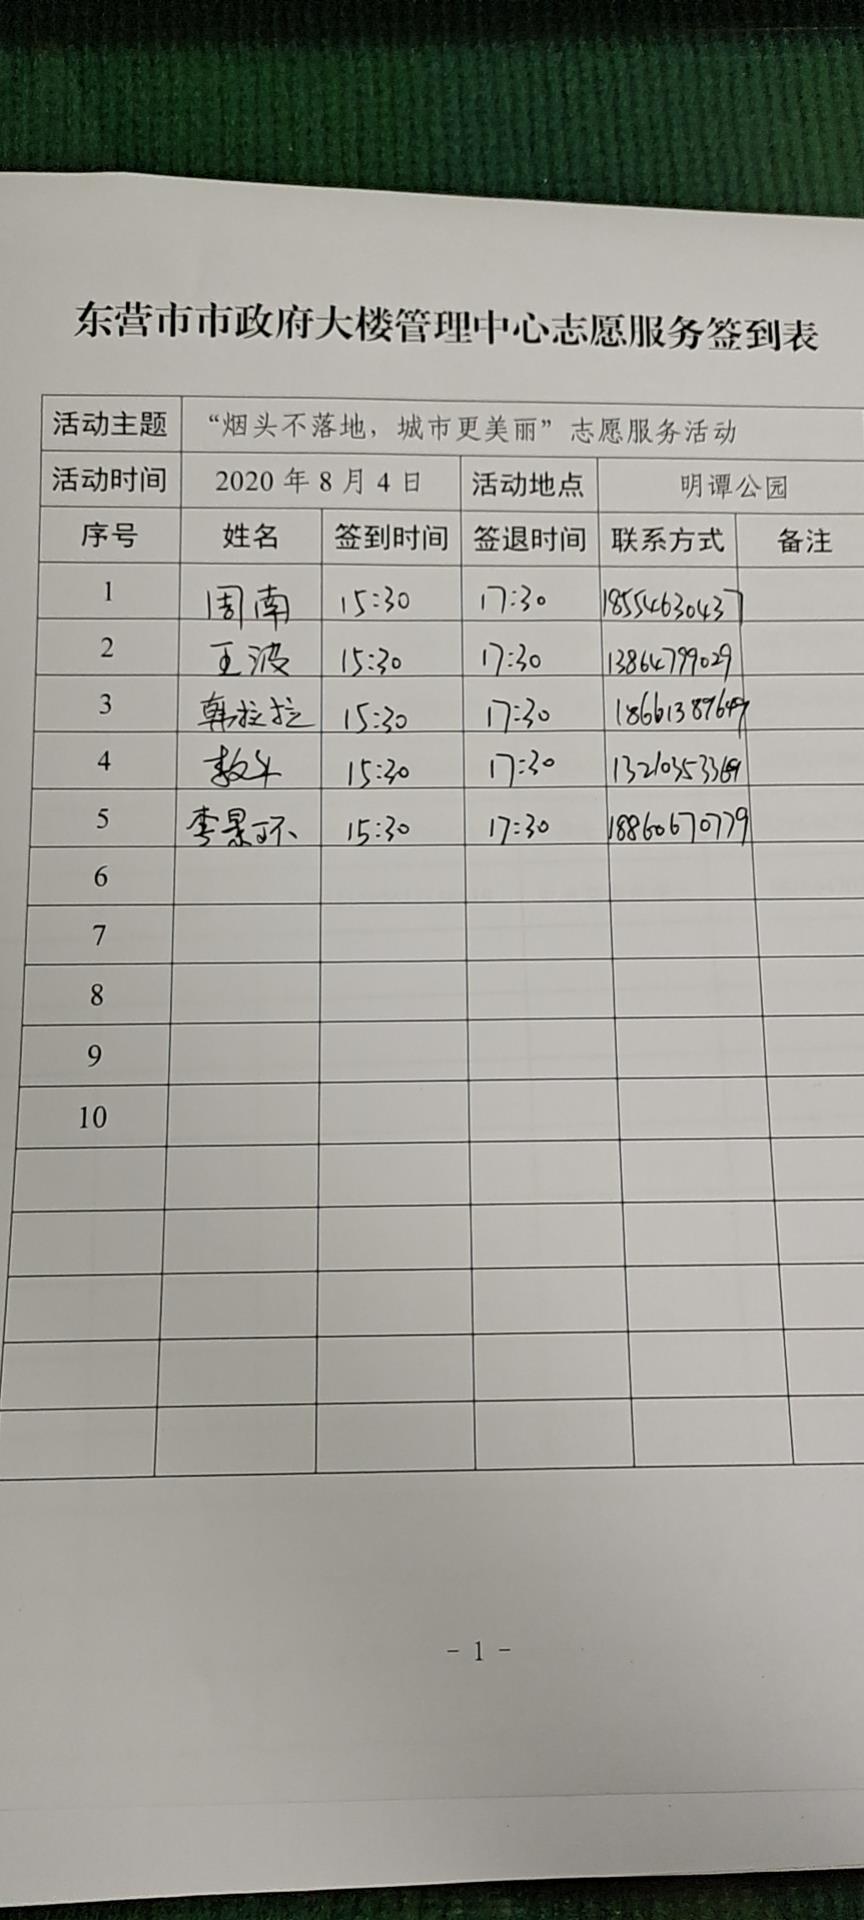 东营市市政府大楼管理中心志愿服务签到表
活动主题 “烟头不落地，城市更美丽”志愿服务活动
活动时间 2020 年 8 月 4 日 活动地点 明谭公园
序号 姓名 签到时间 签退时间 联系方式 备注
1 周南 15:30 17:30 18554630437
2 王波 15:30 17:30 13864799029
3 韩拉拉 15:30 17:30
4 15:30 17:30
5 李景环 15:30 17:30 18860670779
6
7
8
9
10
- 1 -